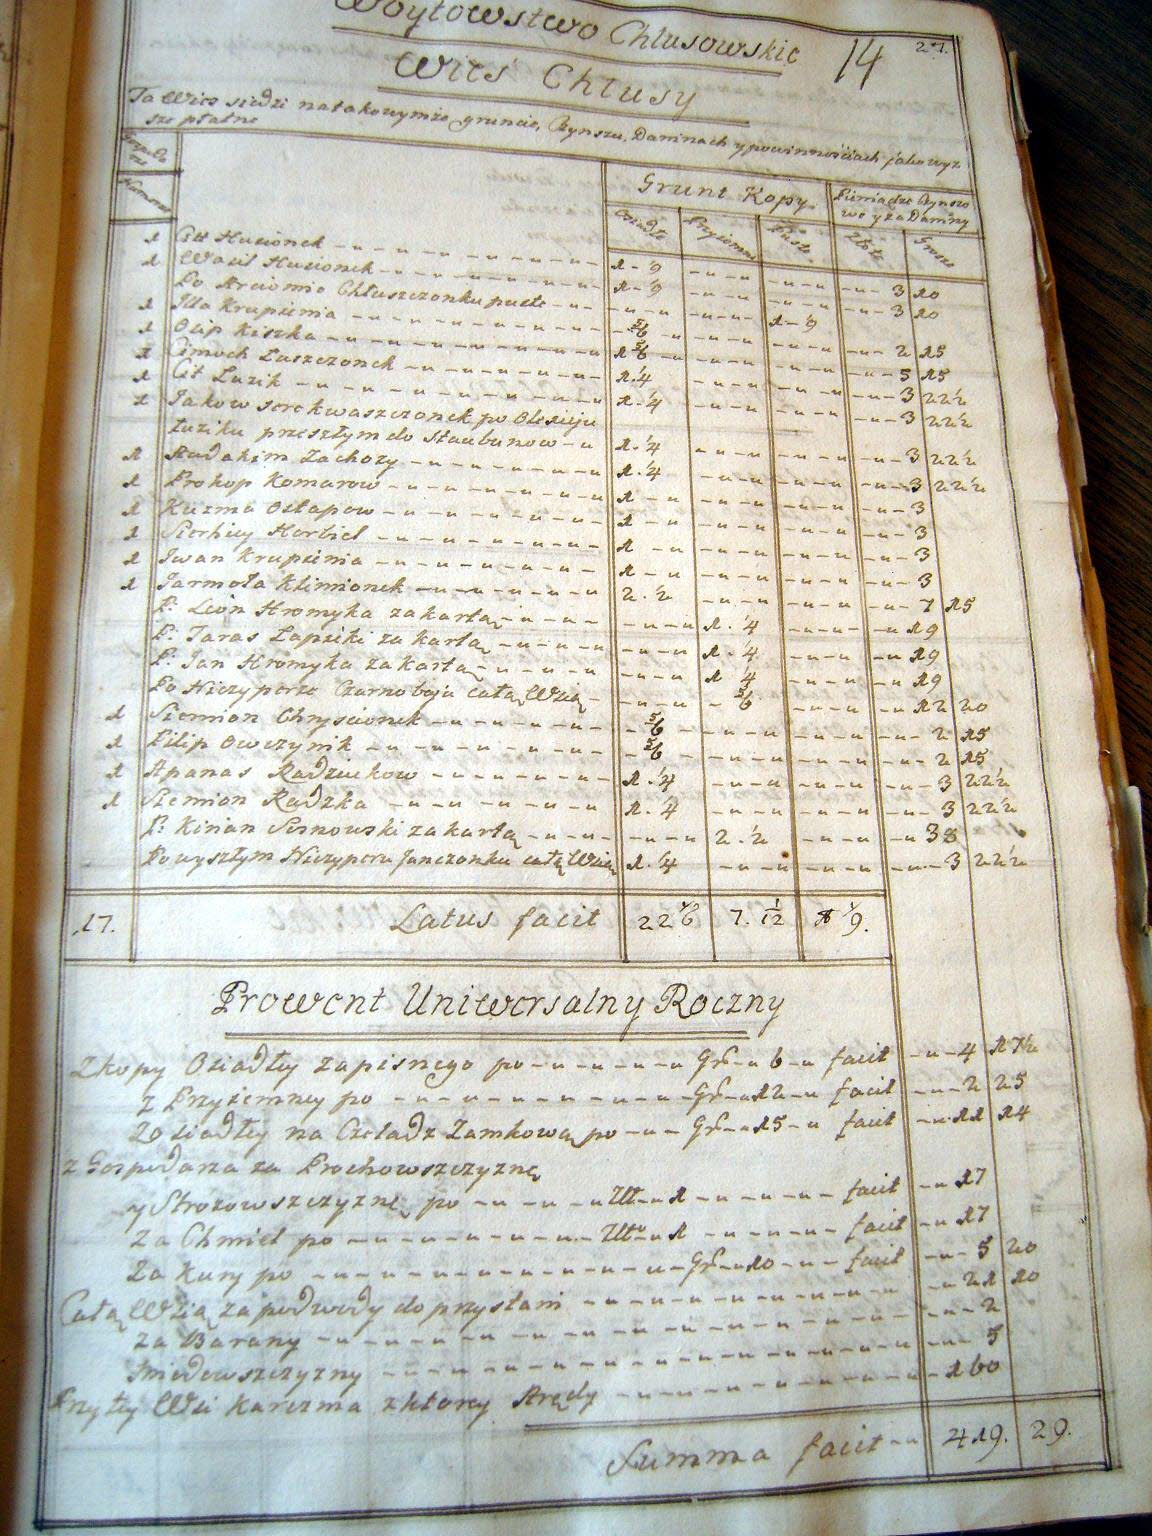 Woytowstwo Chłusowskie 14 27.
Wieś Chłusy
Ta Wies siedzi na takowymże gruncie, Czynszu, Daninach y powinnościach jako wyz
sze płatne
Gospoda
rze
Numero
Grunt Kopy Pieniądze Czynszo
we y za Daniny
Osiadłe Przyiemne Puste Złote Grosze
1 Cit Husionek 1 - 9 3 10
1 Wasil Husionek 1 - 9 3 10
Po Arciomie Chłuszczonku puste 1 - 9
1 Illa Krupienia 5/6 2 15
1 Osip Kiszka 1 5/6 5 15
1 Cimoch Łaszczonek 1. 1/4 3 22 1/2
1 Cit Łuzik 1. 1/4 3 22 1/2
1 Jakow serekwaszczonek po Olesieju
Łuziku przeszłym do Staubunow 1. 1/4 3 22 1/2
1 Radakim Zachozy 1. 1/4 3 22 1/2
1 Prokop Komarow 1 3
1 Kuzma Ostapow 1 3
1 Sierhiey Horbiel 1 3
1 Jwan Krupienia 1 3
1 Jarmoła Klimionek 2. 1/2 7 15
P. Leon Hromyka za kartą 1. 1/4 19
P. Taras Łapziki za kartą 1. 1/4 19
P. Jan Hromyka za kartą 1 1/4 19
Po Niczyperze Czarnoboju całą Wsią 5/6 12 20
1 Siemion Chryscionek 5/6 2 15
1 Filip Owczynik 5/6 2 15
1 Apanas Radziukow 1. 1/4 3 22 1/2
1 Siemion Radzka 1. 1/4 3 22 1/2
P. Kirian Sesnowski za kartą 2. 1/2 38
Po wyszłym Niczyperu Janczonku całą Wsią 1. 1/4 3 22 1/2
17. Latus facit 22 1/6 7. 1/12 1/9.
Prowent Uniwersalny Roczny
Z kopy Osiadłey zapisnego po Gr 6 facit 4 17 1/2
z Przyiemney po Gr 12 facit 2 25
Zosiadłey na Czeladz Zamkową po Gr 15 facit 11 14
z Gospodarza za Prochowszczyznę
y Strozowszczyznę po Złł 1 facit 17
Za Chmiel po Złł 1 facit 17
Za Kury po Gr 10 facit 5 20
Całą Wsią za podwody do przystani 21 10
za Barany 2
Miodowszczyzny 5
Przy tey Wsi Karczma z ktorey Arędy 160
Summa facit 419. 29.